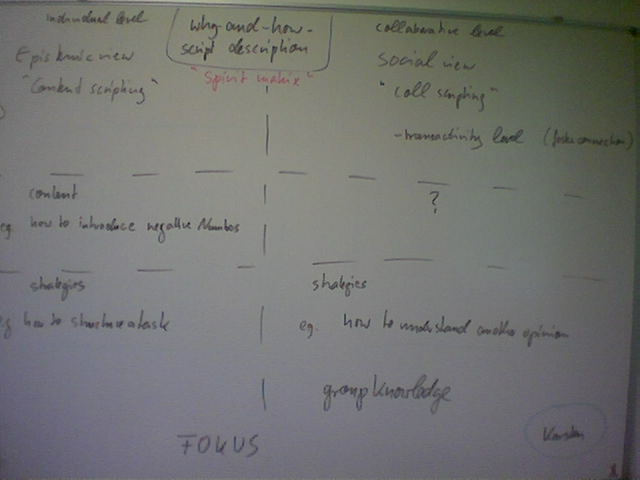 individual level
why-and-how-
script description
collaborative level
Epistemic view
"Content scripting"
"Spirit matrix"
social view
"coll scripting"
-transactivity level (foster connection)
content
?
eg. how to introduce negative Numbers
strategies
strategies
eg how to structure a task
eg. how to understand another opinion
group knowledge
FOKUS
Karsten